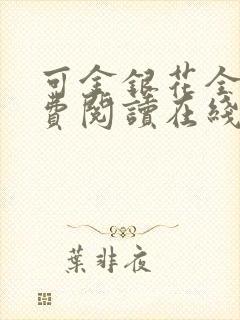 可金銀花全
費閱讀在綫
葉非夜